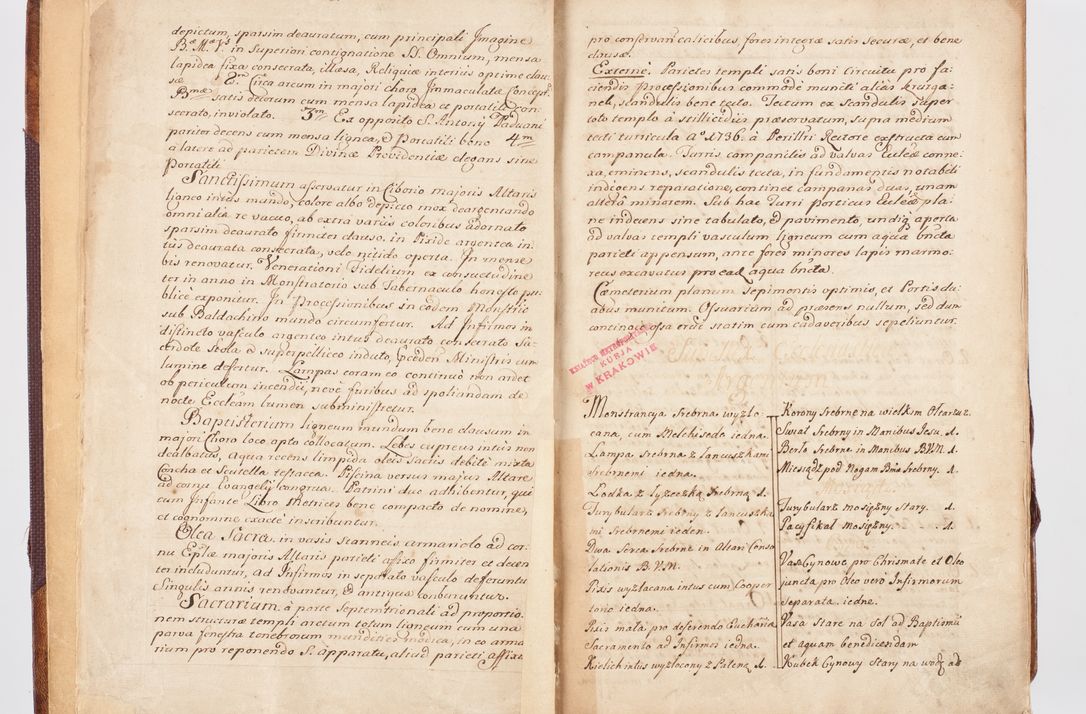 depictum, sparsim deauratum, cum principali Imagine
B.æ M.æ V.s in superiori contignatione SS. Omnium, mensa
lapidea fixa consecrata, illæsa, Reliquiæ interius optime clau
sæ 2.m Circa arcum in majori choro Immaculatæ Concept:
B.mæ satis decorum cum mensa lapidea et portatili con:
secrato, inviolato. 3.m Ex opposito S. Antonij Paduani
pariter decens cum mensa lignea, & Portatili bono 4.m
a latere ad parietem Divinæ Providentiæ elegans sine
Portatili.
Sanctissimum asservatur in Ciborio majoris Altaris
ligneo intus mundo, colore albo depicto mox deargentando
omni alia re vacuo, ab extra variis coloribus adornato
sparsim deaurato firmiter clauso, in Pixide argentea in:
tus deaurata consecrata, velo nitido operta. In mense
bis renovatur. Venerationi Fidelium ex consuetudine
ter in anno in Monstratorio sub Tabernaculo honesto pu:
blice exponitur. In Processionibus in eodem Monstrio
sub Baldachino mundo circumfertur. Ad Infirmos in
distincto vasculo argenteo intus deaurato consecrato Sa:
cerdote Stola & superpelliceo induto, præceden: Ministris cum
lumine defertur. Lampas coram eo continuo non ardet
ob periculum incendii, neve furibus ad spoliandam de
nocte Eccleam lumen subministretur.
Baptisterium ligneum mundum bene clausum in
majori Choro loco apto collocatum. Lebes cupreus intus non
dealbatus, aqua recens limpida oleis sacris debite mixta
Concha et Scutella testacea. Piscina versus majus Altare
ad cornu Evangelij congrua. Patrini duo adhibentur, qui
cum Infante Libro Metrices bene compacto de nomine,
et cognomine exacte inscribuntur.
Olea Sacra, in vasis stanneis armariolo ad cor:
nu Eplæ majoris Altaris parieti affixo firmiter et decen
ter includuntur, ad Infirmos in separato vasculo deferuntu
Singulis annis renovantur, & antiqua comburuntur.
Sacrarium à parte Septemtrionali ad proportio:
nem structuræ templi arctum totum ligneum cum una
parva fenestra tenebronum munditiei modica, in eo arma
rium pro reponendo S. apparatu, aliud parieti affixu
pro conservan: calicibus, fores integræ satis securæ, et bene
clausæ.
Externe. Parietes templi satis boni Circuitu pro fa:
ciendis Processionibus commode muniti alias kruzga:
nek, scandulis bene tecto. Tectum ex Scandulis super
toto templo à stillicidiis præservatum, supra medium
tecti turricula A.o 1736. à Perilltri Rectore exstructa cum
campanula. Turris campanilis ad valvas Ecleæ conne:
xa, eminens, scandulis tecta, in fundamentis notabili
indigens reparatione, continet campanas duas, unam
alterâ minorem. Sub hac Turri Porticus Ecleæ pla:
ne indecens sine tabulato, & pavimento, undiq aperta
ad valvas templi vasculum ligneum cum aqua bncta
parieti appensum, ante fores minores lapis marmo:
reus excavatus pro ead. aqua bncta.
Cæmeterium planum sepimentis optimis, et Portis du
abus munitum. Ossuarium ad præsens nullum, sed dum
contingat, ossa erue statim cum cadaveribus sepeliuntur.
KSIĄŻĘCO METROPOLITALNA
KURJA
W KRAKOWIE
Argentum
Monstrancya Srebrna wyzło:
cana, cum Melchisede iedna.
Lampa Srebrna z łancuszkami
srebrnemi iedna.
Łodka z łyzeczką Srebrną 1.
Turybularz Srebrny z łancuszka
mi Srebrnemi ieden.
Dwa Serca Srebrne in Altari Conso
lationis B.V.M.
Pixis wyzłacana intus cum Cooper
torio iedna.
Pixis mała pro deferendo Eucharis.
Sacramento ad Infirmos iedna.
Kielich intus wyzłocony z Pateną 1.
Korony Srebrne na wielkim Ołtarzu 2.
Swiat Srebrny in Manibus Jesu. 1.
Berło Srebrne in Manibus B.V.M. 1.
Miesiądz pod Nogam Bmæ Srebrny. 1.
Mosiądz
Turybularz mosiężny stary. 1.
Pacyfikał mosiężny. 1.
Vasa Cynowe pro Chrismate et Oleo
juncta pro Oleo vero Infirmorum
separata iedne.
Vasa stare na Sol ad Baptismũ
et aquam benedicendam
Kubek Cynowy stary na wodę ad